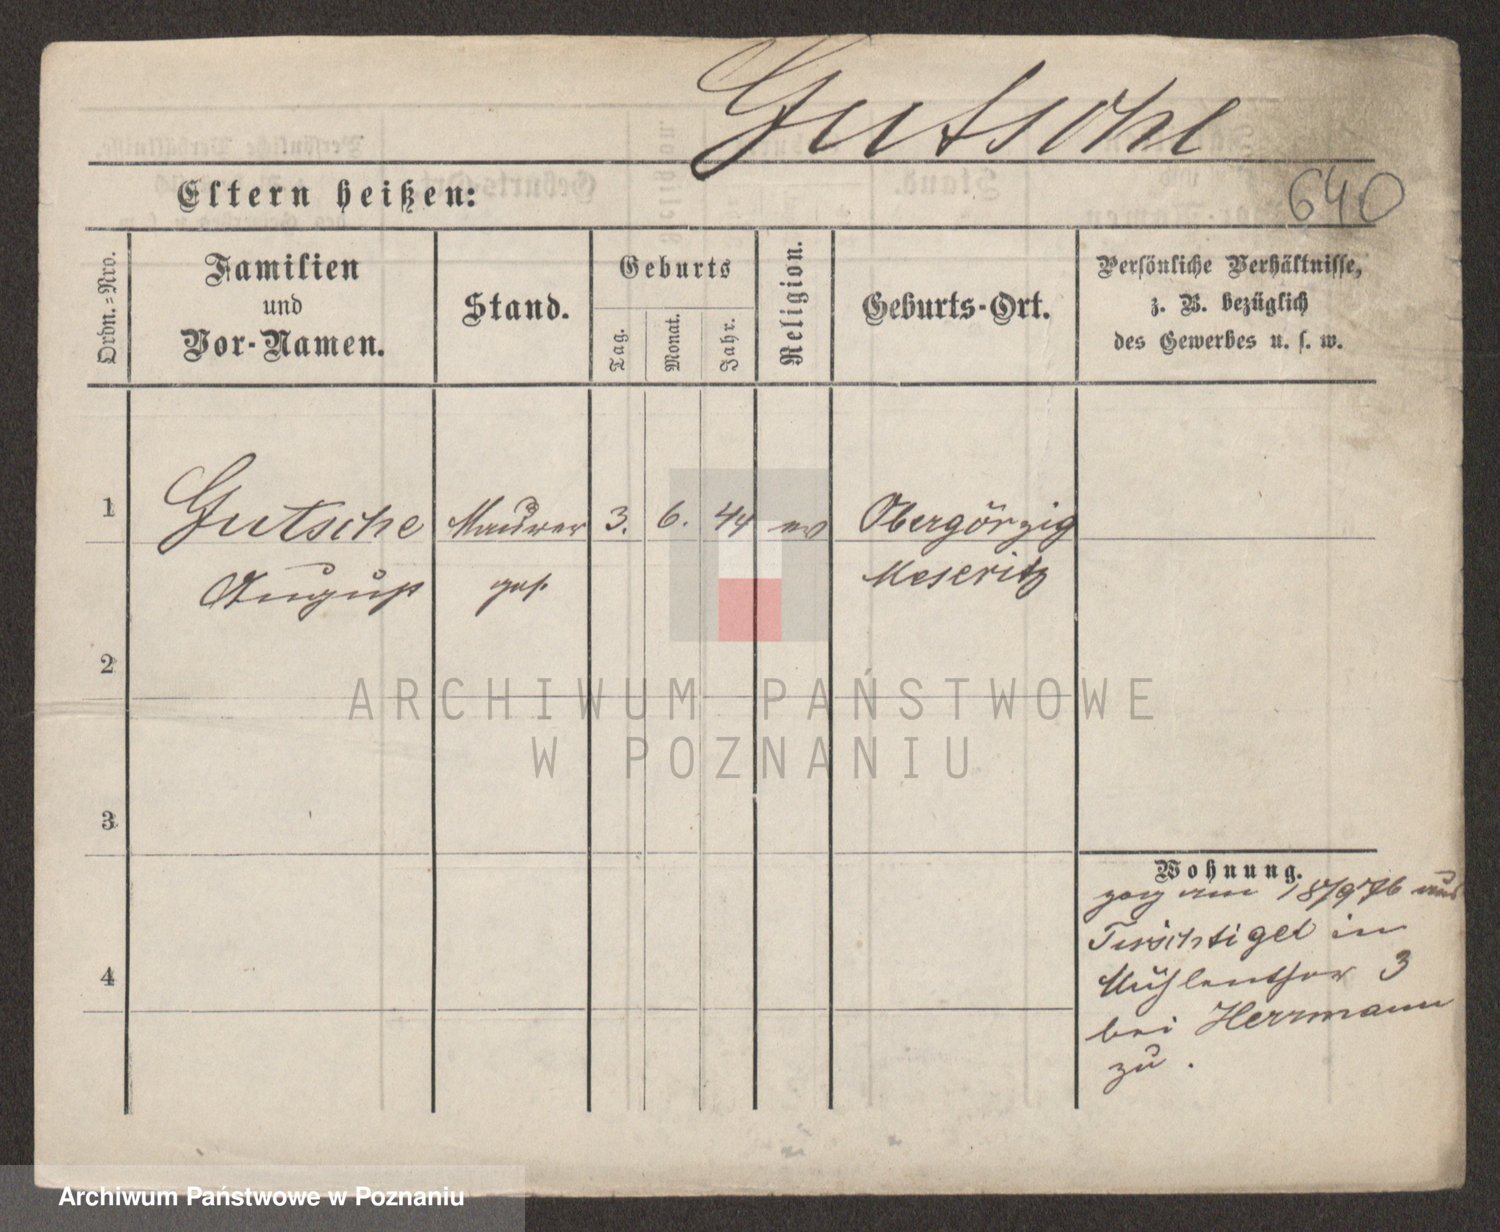 Gutsche
640
Eltern heißen:
Ordn.=Nro.
Familien
und
Vor-Namen.
Stand.
Geburts
Tag.
Monat.
Jahr.
Religion.
Geburts-Ort.
Persönliche Verhältnisse,
z. B. bezüglich
des Gewerbes u. s. w.
1
Gutsche Maurer 3. 6. 44 ev Obergörzig
August ges. Meseritz
2
ARCHIWUM PAŃSTWOWE
W POZNANIU
3
Wohnung.
zog am 18/9 76 aus
Tirschtigel in
Mühlenthor 3
4
bei Herrmann
zu.
Archiwum Państwowe w Poznaniu